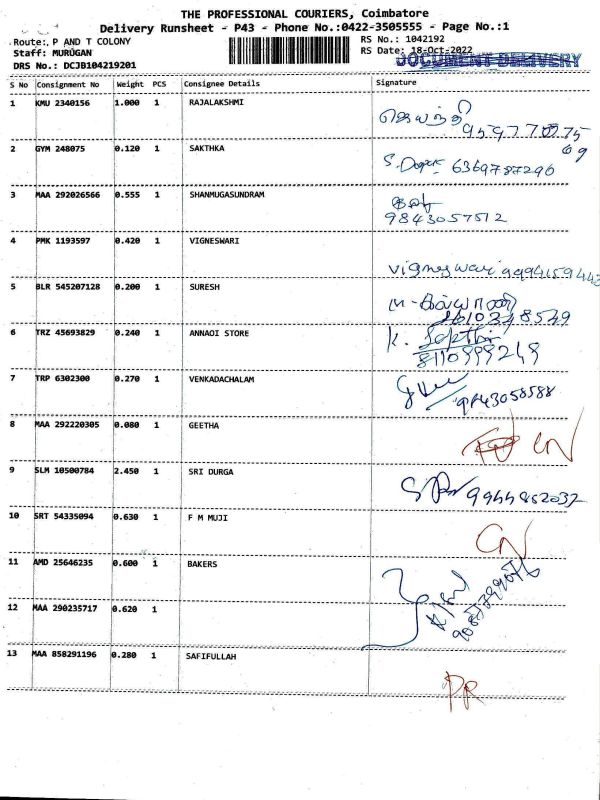 THE PROFESSIONAL COURIERS, Coimbatore
Delivery Runsheet - P43 - Phone No.:0422-3505555 - Page No.:1
Route:. P AND T COLONY
RS No.: 1042192
Staff: MURUGAN
RS Date: 18-Oct-2022
DOCUMENT DELIVERY
DRS No.: DCJB104219201
S No Consignment No Weight PCS Consignee Details Signature
1 KMU 2340156 1.000 1 RAJALAKSHMI
2 GYM 248075 0.120 1 SAKTHKA 6369787296
3 MAA 292026566 0.555 1 SHANMUGASUNDRAM
9843057512
4 PMK 1193597 0.420 1 VIGNESWARI
vigneswari
5 BLR 545207128 0.200 1 SURESH
6 TRZ 45693829 0.240 1 ANNAOI STORE
K.
8110999249
7 TRP 6302300 0.270 1 VENKADACHALAM
9843058588
8 MAA 292220305 0.080 1 GEETHA
CN
9 SLM 10500784 2.450 1 SRI DURGA
10 SRT 54335094 0.630 1 F M MUJI
CN
11 AMD 25646235 0.600 1 BAKERS
12 MAA 290235717 0.620 1
13 MAA 858291196 0.280 1 SAFIFULLAH
PR